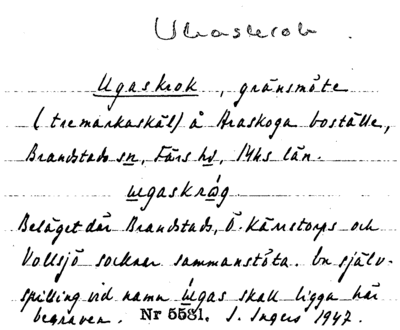 Ugaskrok
Ugaskrok, gränsmöte
(tremarkaskäl) å Araskoga boställe,
Brandstads sn, Färs hd, Mhs län.
ugaskråg
Beläget där Brandstads, Ö. Kärrstorps och
Vollsjö socknar sammanstöta. En själv-
spilling vid namn Ugas skall ligga här
begraven. Nr 5581. S. Ingers 1947.